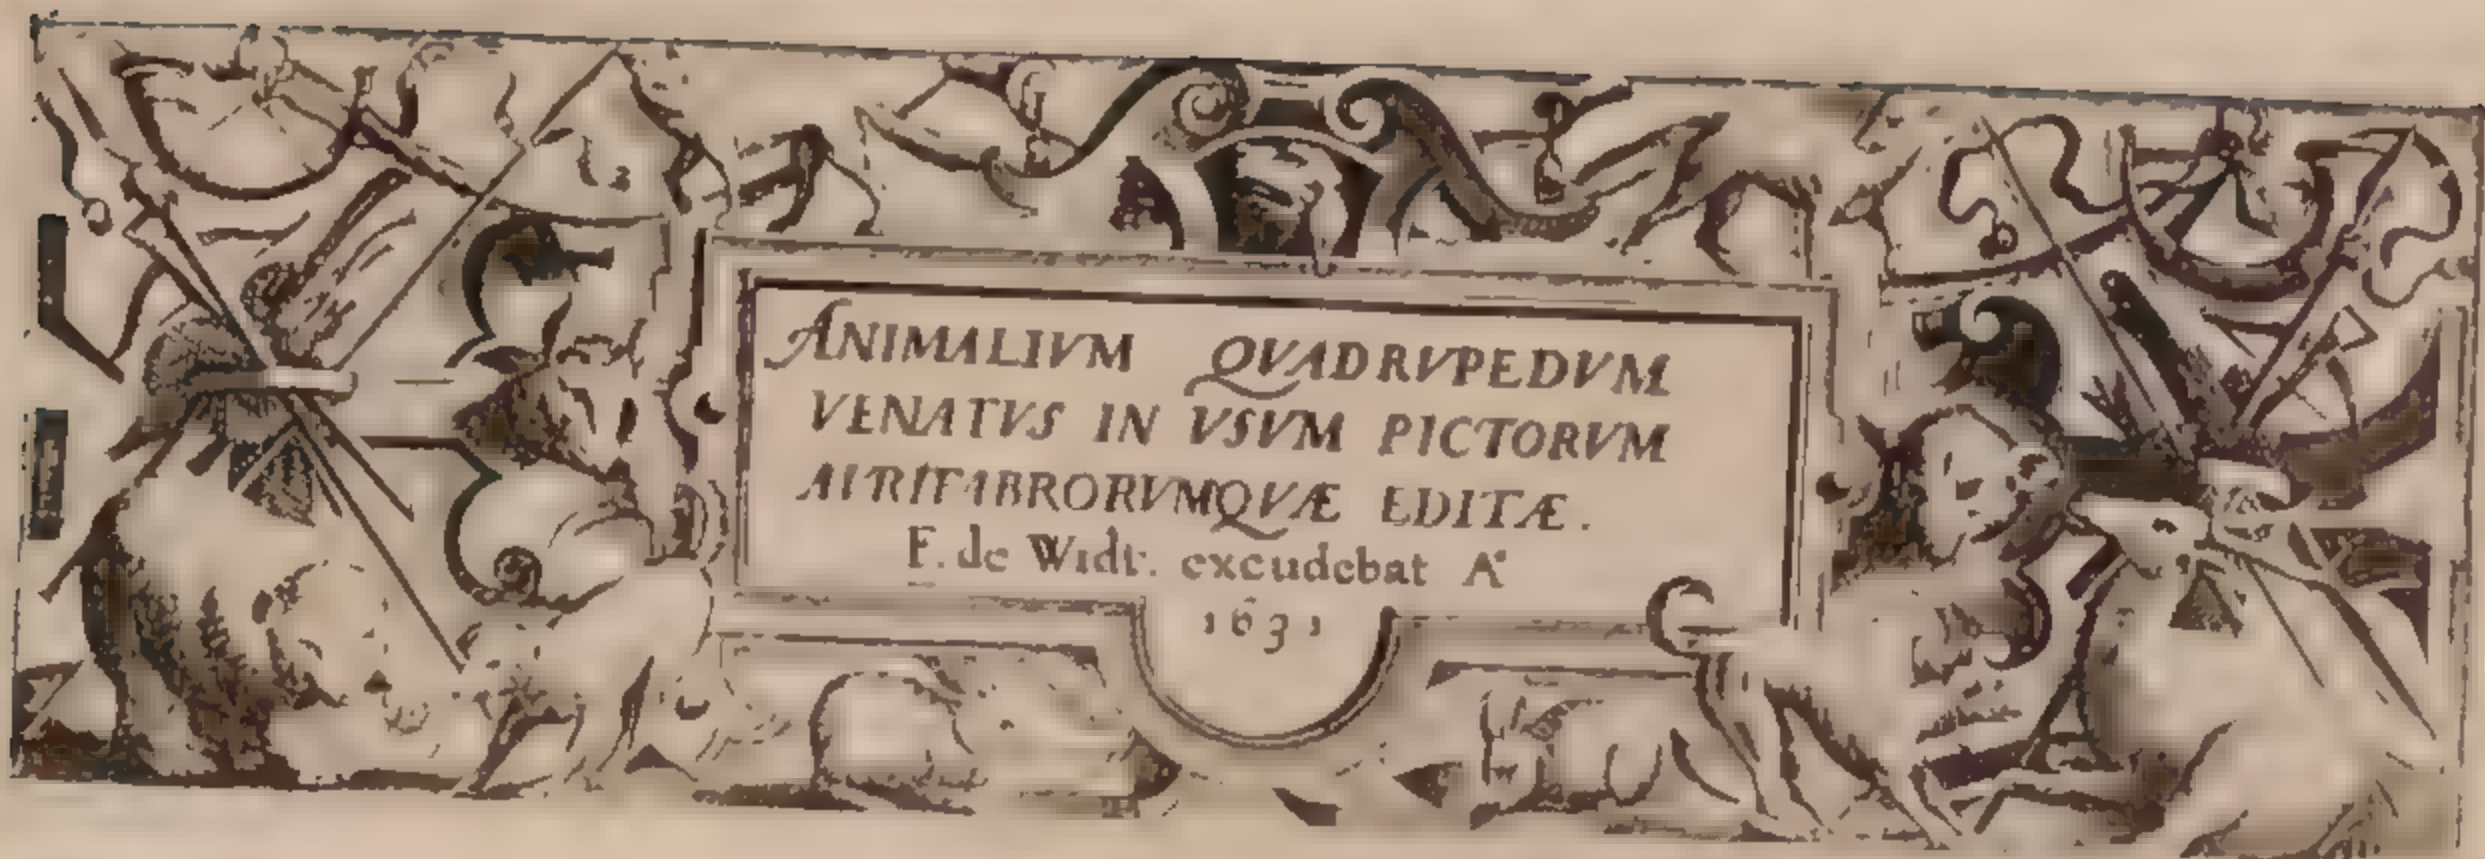 ANIMALIVM QVADRVPEDVM
VENATVS IN VSVM PICTORVM
AVRIFABRORVMQVÆ EDITÆ.
F. de Widt. excudebat A°
1631